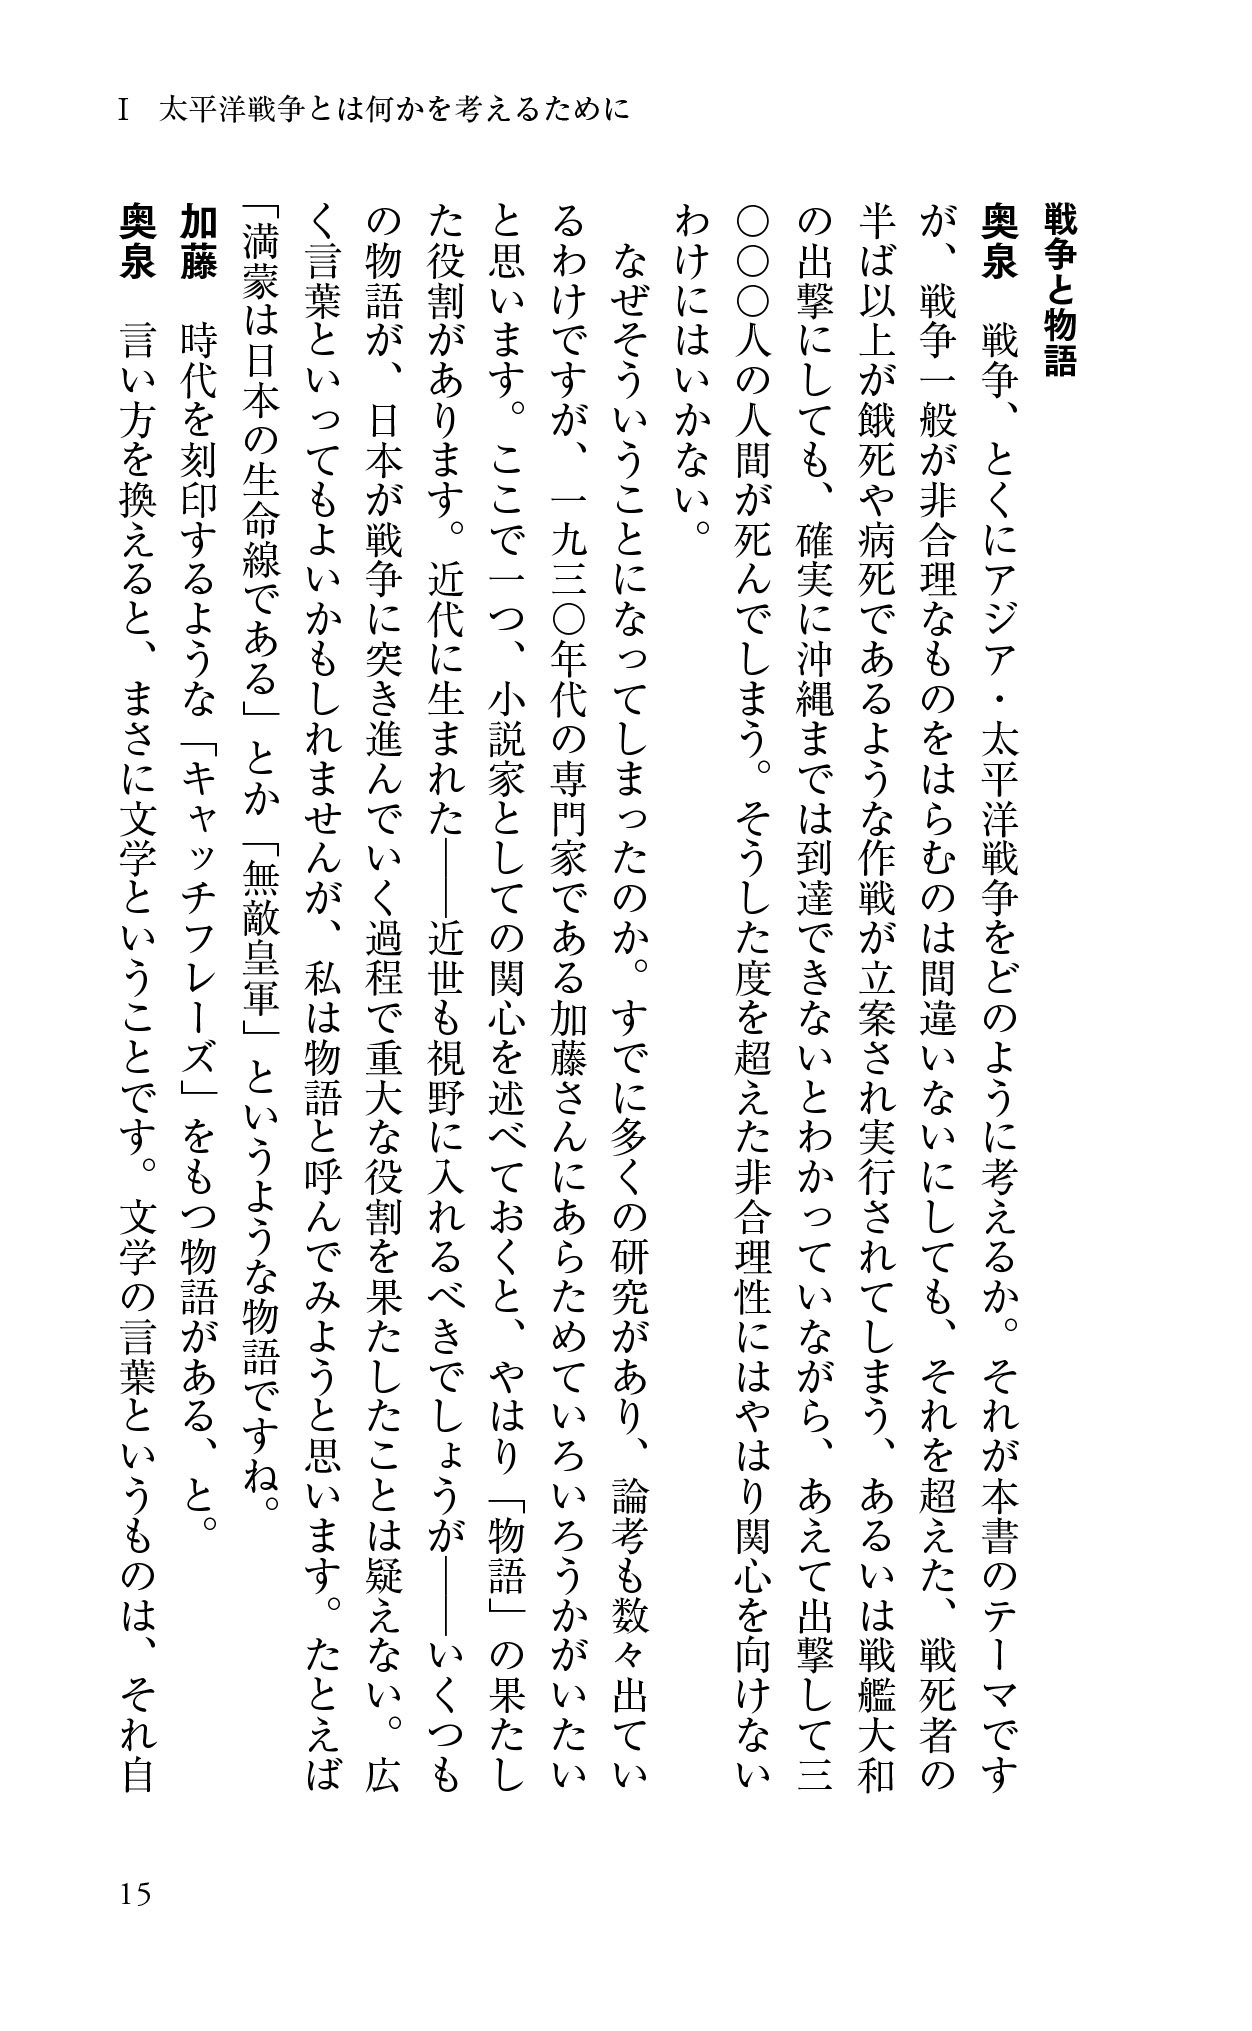 I　太平洋戦争とは何かを考えるために
戦争と物語
奥泉　戦争、とくにアジア・太平洋戦争をどのように考えるか。それが本書のテーマです
が、戦争一般が非合理なものをはらむのは間違いないにしても、それを超えた、戦死者の
半ば以上が餓死や病死であるような作戦が立案され実行されてしまう、あるいは戦艦大和
の出撃にしても、確実に沖縄までは到達できないとわかっていながら、あえて出撃して三
〇〇〇人の人間が死んでしまう。そうした度を超えた非合理性にはやはり関心を向けない
わけにはいかない。
　なぜそういうことになってしまったのか。すでに多くの研究があり、論考も数々出てい
るわけですが、一九三〇年代の専門家である加藤さんにあらためていろいろうかがいたい
と思います。ここで一つ、小説家としての関心を述べておくと、やはり「物語」の果たし
た役割があります。近代に生まれた――近世も視野に入れるべきでしょうが――いくつも
の物語が、日本が戦争に突き進んでいく過程で重大な役割を果たしたことは疑えない。広
く言葉といってもよいかもしれませんが、私は物語と呼んでみようと思います。たとえば
「満蒙は日本の生命線である」とか「無敵皇軍」というような物語ですね。
加藤　時代を刻印するような「キャッチフレーズ」をもつ物語がある、と。
奥泉　言い方を換えると、まさに文学ということです。文学の言葉というものは、それ自
15